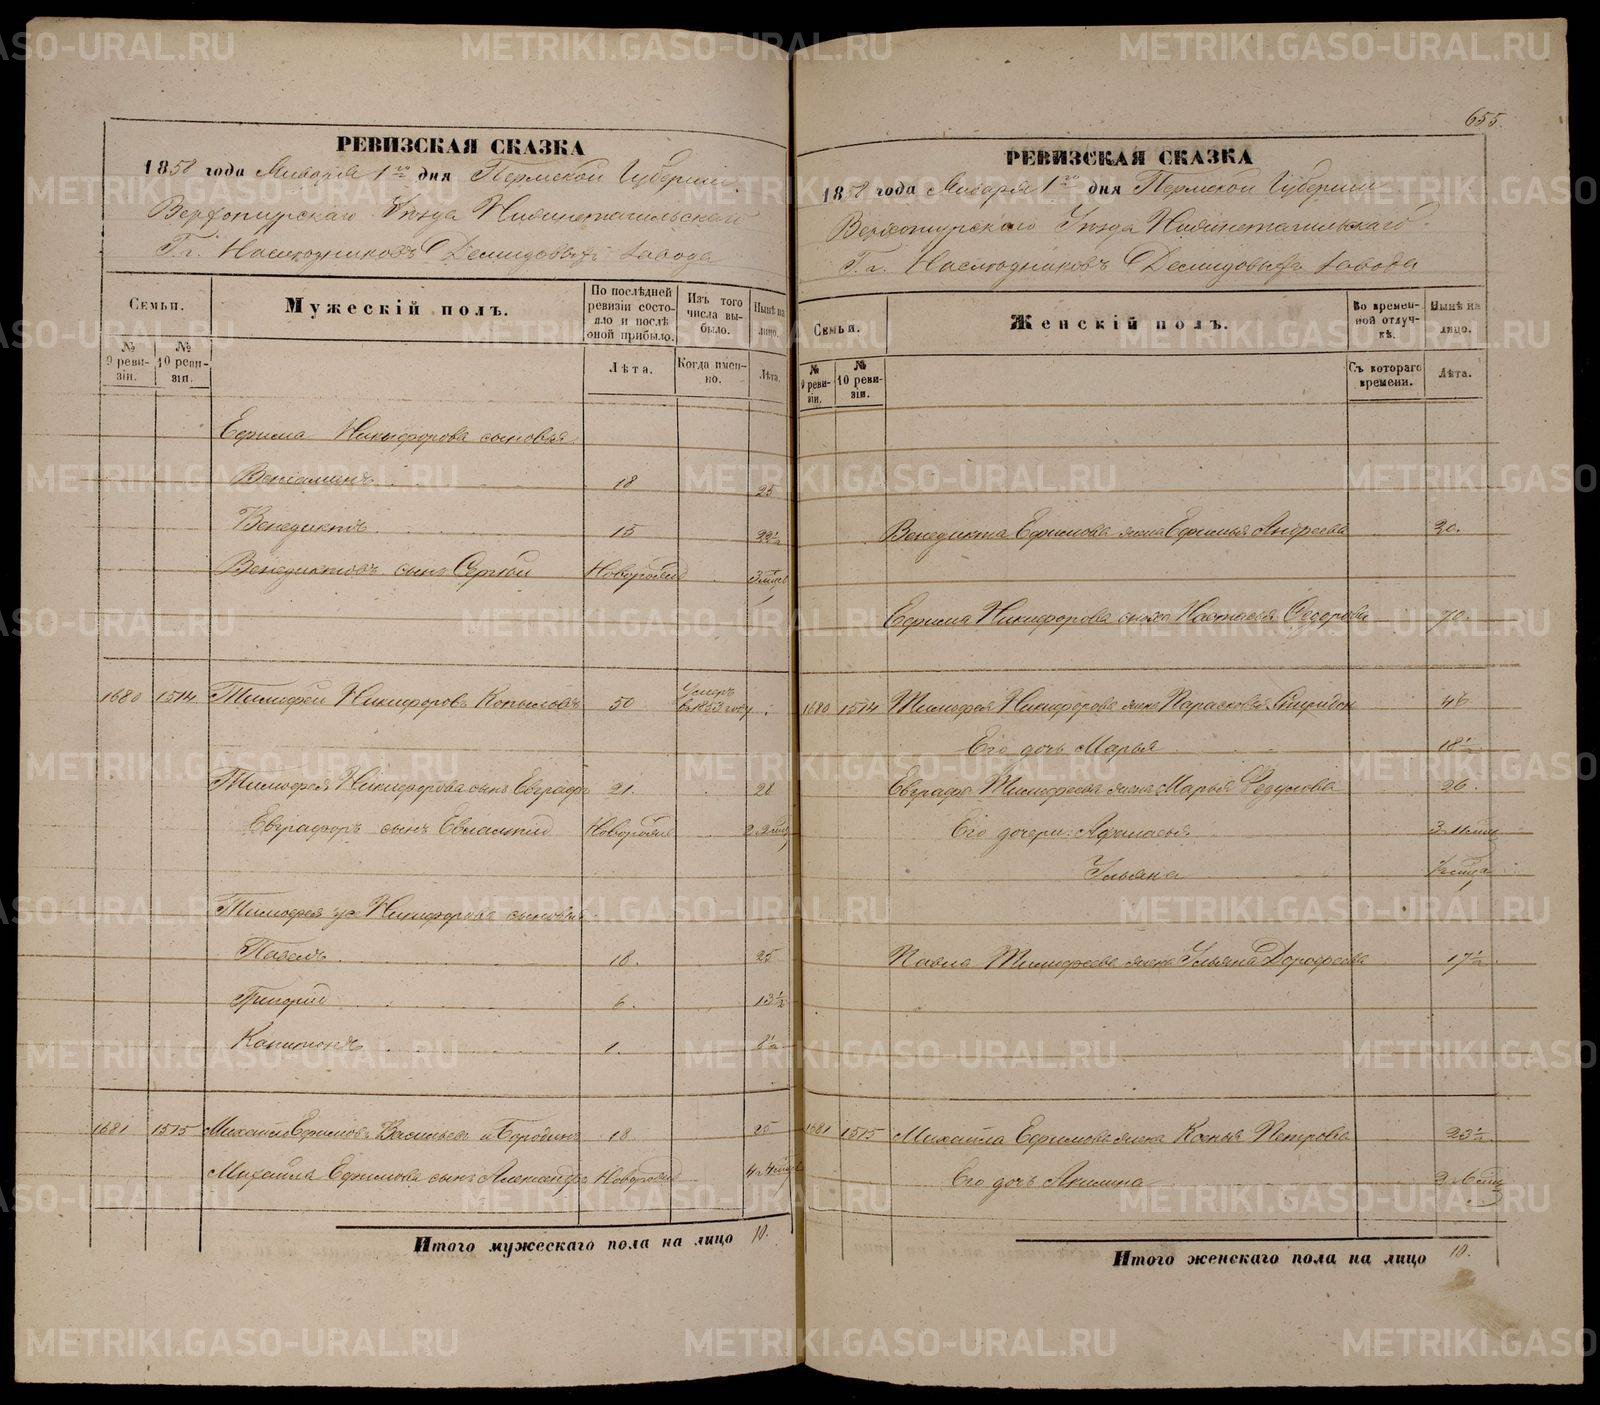 655.
РЕВИЗСКАЯ СКАЗКА
1858 года Января 1го дня Пермской Губернии
Верхотурскаго Уезда Нижнетагильскаго
Г.г. Наследниковъ Демидовыхъ завода
Семьи.
№ 9 ревизіи.
№ 10 ревизіи.
Мужескій полъ.
По послѣдней ревизіи состояло и послѣ оной прибыло.
Лѣта.
Изъ того числа выбыло.
Когда именно.
Нынѣ на лицо.
Лѣта.
Ефима Никифорова сыновья
Веніаминъ 18 25
Венедиктъ 15 22½
Венедиктовъ сынъ Сергей Новорожд
1680 1514 Тимофей Никифоровъ Копыловъ 50 Умеръ в 1853 году
Тимофея Никифорова сынъ Евграфъ 21. 28
Евграфовъ сынъ Евлампий Новорожд
Тимофея же Никифорова сыновья
Павелъ 18. 25
Григорий 6. 13½
Капитонъ 1. 8½
1681 1515 Михайло Ефимовъ Васильевъ и Бородинъ 18 25
Михайла Ефимова сынъ Александръ Новорожд
Итого мужескаго пола на лицо 10.
РЕВИЗСКАЯ СКАЗКА
1858 года Января 1го дня Пермской Губернии
Верхотурскаго Уезда Нижнетагильскаго
Г.г. Наследниковъ Демидовыхъ завода
Семьи.
№ 9 ревизіи.
№ 10 ревизіи.
Женскій полъ.
Во временной отлучкѣ.
Съ котораго времени.
Нынѣ на лицо.
Лѣта.
Венедикта Ефимова жена Ефимья Андреева 20.
Ефима Никифорова Настасья Федорова 70.
1680 1514 Тимофея Никифорова жена Парасковья Спиридон 46
Его дочь Марья 18½
Евграфа Тимофеева жена Марья Федулова 26.
Его дочери: Афанасья
Ульяна
Павла Тимофеева жена Ульяна Дорофеева 17½
1681 1515 Михайла Ефимова жена Ксенья Петрова 23½
Его дочь Акилина
Итого женскаго пола на лицо 10.
METRIKI.GASO-URAL.RU